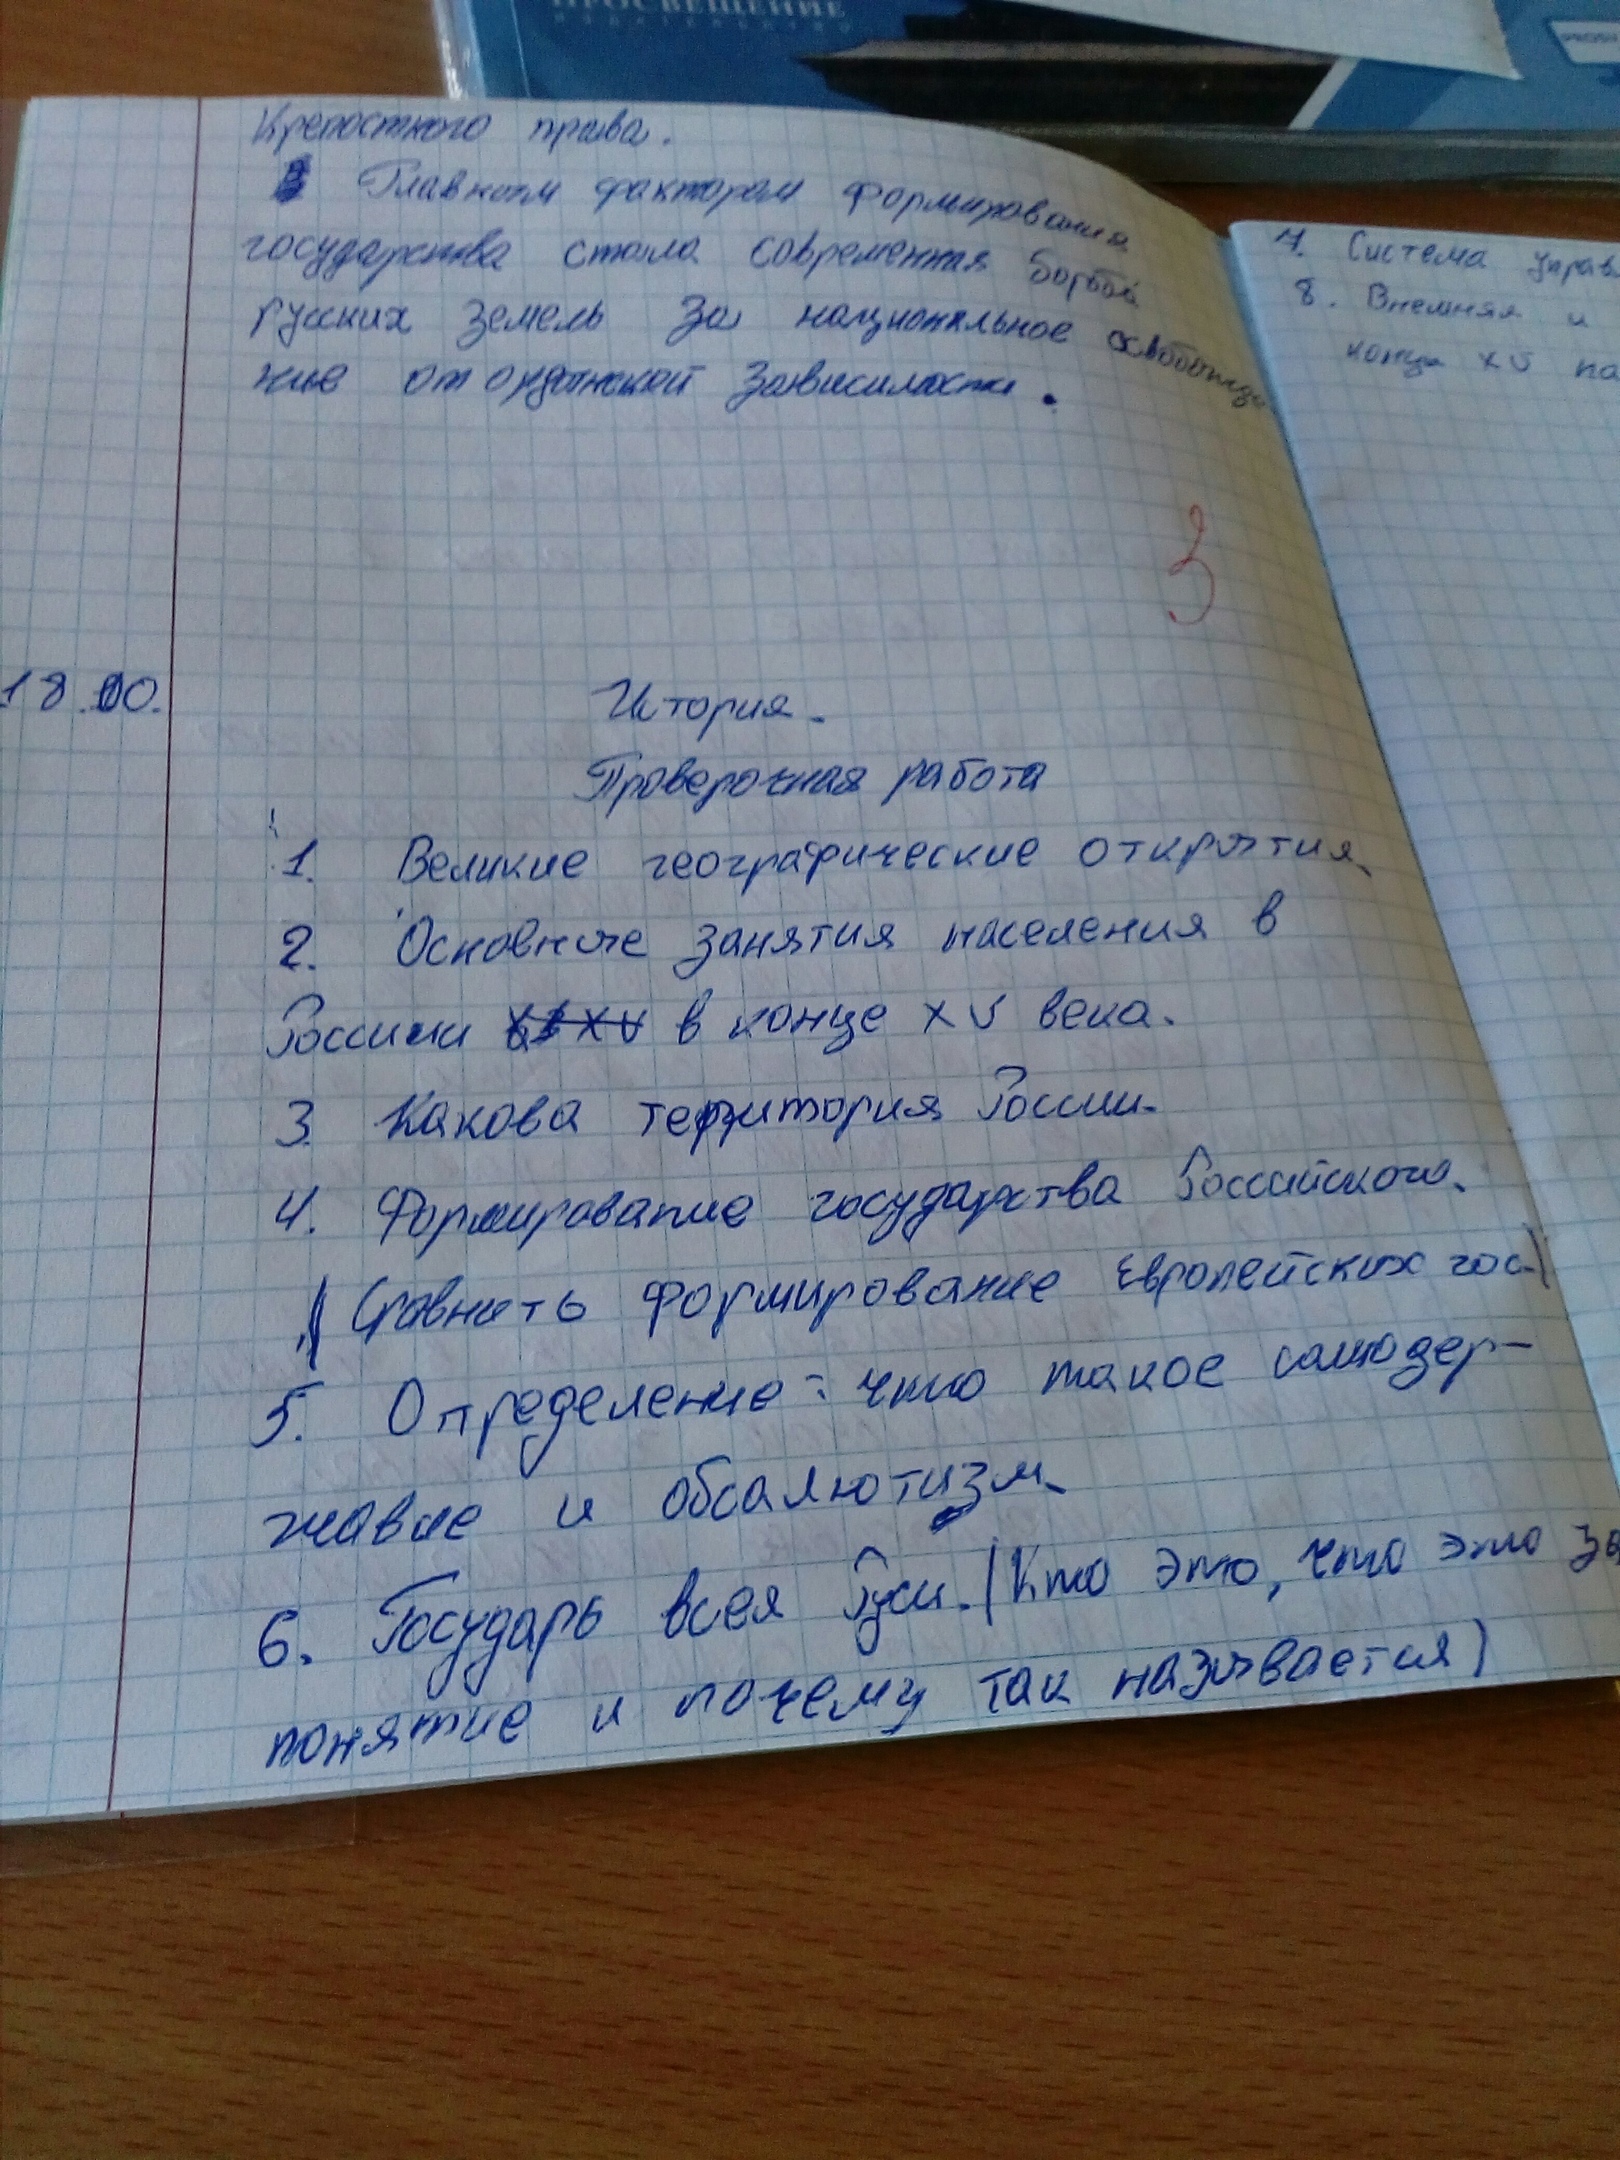 ПРОСВЕЩЕНИЕ
ИЗДАТЕЛЬСТВО
Крепостного права.
Главным фактором формирования
государства стала современная борьба
русских земель за национальное освобожде
ние от ордынской зависимости.
3
18.10.
История.
Проверочная работа
1. Великие географические открытия.
2. Основные занятия населения в
России в конце XV века.
3. Какова территория России.
4. Формирование государства Российского.
(Сравнить формирование европейских гос.)
5. Определение: что такое самодер-
жавие и обсалютизм.
6. Государь всея Руси. (Кто это, что это за
понятие и почему так называется)
7. Система управ
8. Внешняя и
конце XV па